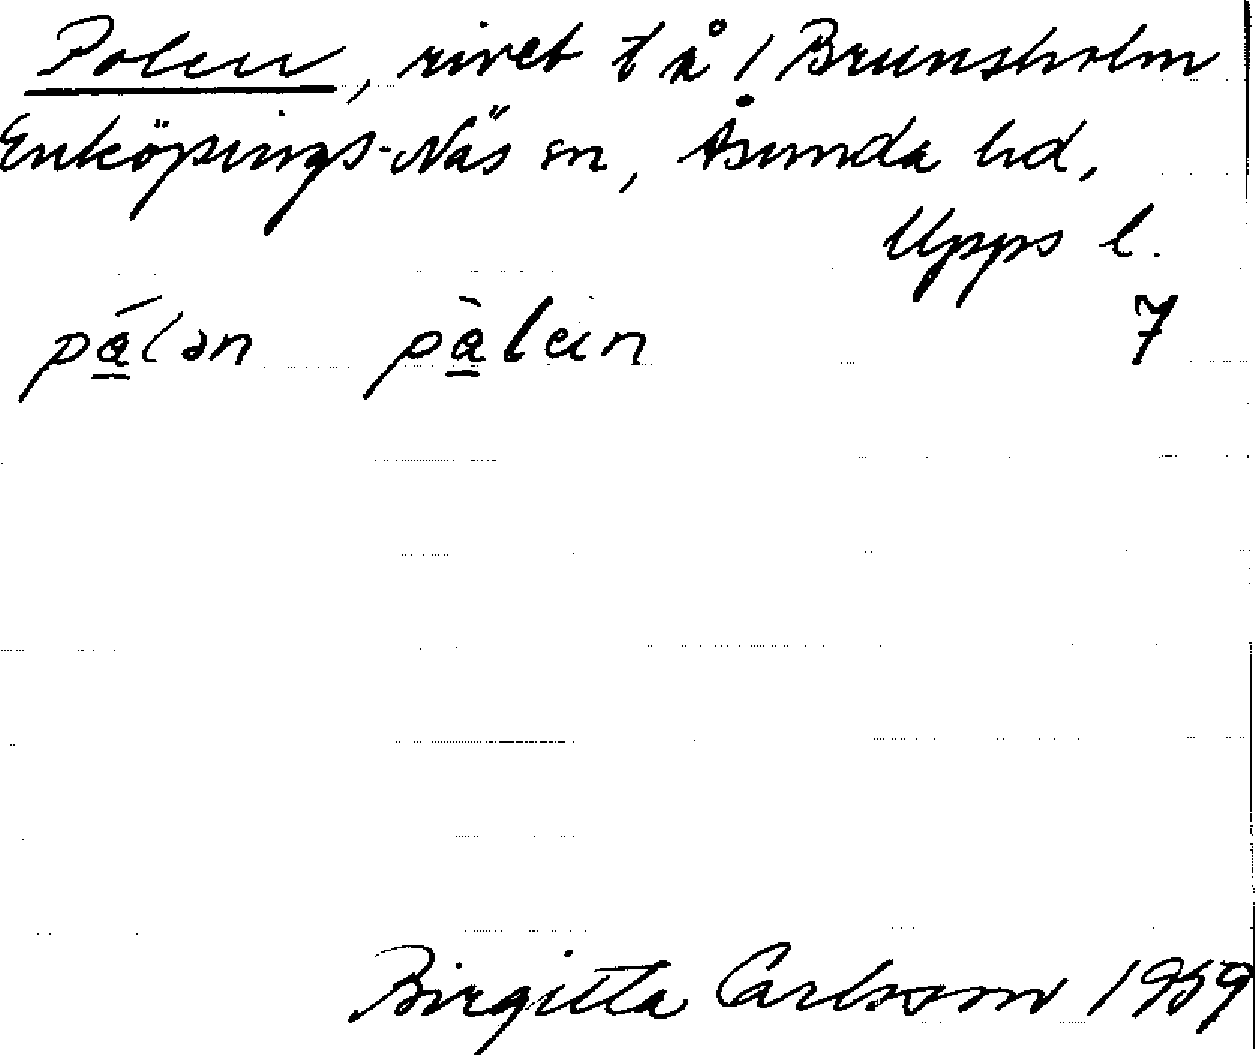 Polen, rivet t å 1 Brunsholm
Enköpings-Näs sn, Åsunda hd,
Upps l.
pálən pàlein 7
Birgitta Carlsson 1959